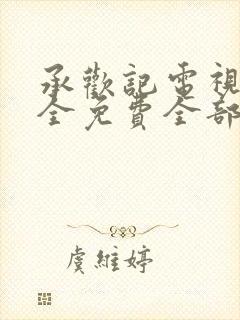 承歡記電視
全免費全部
虞維婷